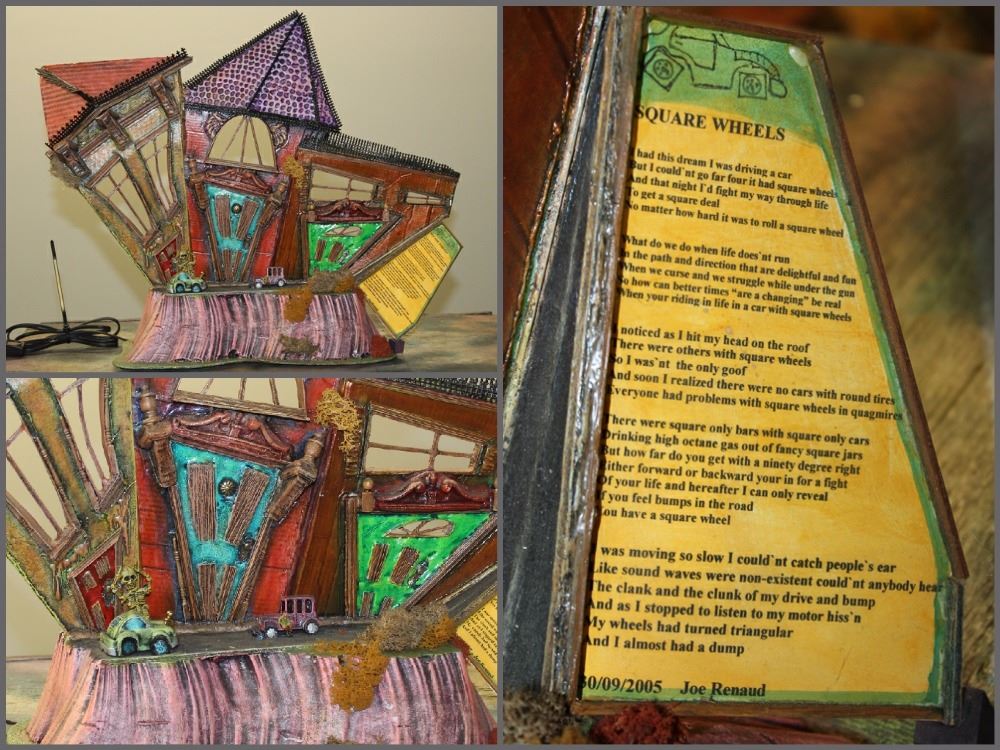 SQUARE WHEELS
I had this dream I was driving a car
But I could`nt go far four it had square wheels
And that night I`d fight my way through life
To get a square deal
No matter how hard it was to roll a square wheel
What do we do when life does`nt run
In the path and direction that are delightful and fun
When we curse and we struggle while under the gun
So how can better times “are a changing” be real
When your riding in life in a car with square wheels
I noticed as I hit my head on the roof
There were others with square wheels
So I was`nt the only goof
And soon I realized there were no cars with round tires
Everyone had problems with square wheels in quagmires
There were square only bars with square only cars
Drinking high octane gas out of fancy square jars
But how far do you get with a ninety degree right
Either forward or backward your in for a fight
Of your life and hereafter I can only reveal
If you feel bumps in the road
You have a square wheel
I was moving so slow I could`nt catch people`s ear
Like sound waves were non-existent could`nt anybody hear
The clank and the clunk of my drive and bump
And as I stopped to listen to my motor hiss`n
My wheels had turned triangular
And I almost had a dump
30/09/2005 Joe Renaud